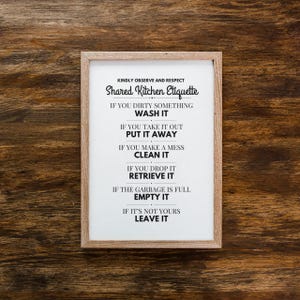 KINDLY OBSERVE AND RESPECT
Shared Kitchen Etiquette
IF YOU DIRTY SOMETHING
WASH IT
IF YOU TAKE IT OUT
PUT IT AWAY
IF YOU MAKE A MESS
CLEAN IT
IF YOU DROP IT
RETRIEVE IT
IF THE GARBAGE IS FULL
EMPTY IT
IF IT'S NOT YOURS
LEAVE IT